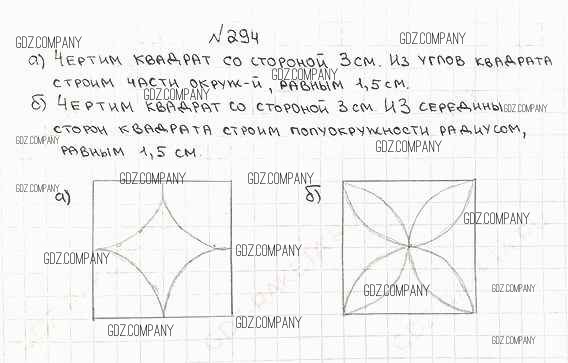 №294
GDZ.COMPANY GDZ.COMPANY
а) Чертим квадрат со стороной 3 см. Из углов квадрата
GDZ.COMPANY
строим части окруж-й, равным 1,5 см.
GDZ.COMPANY
б) Чертим квадрат со стороной 3 см Из середины
GDZ.COMPANY
сторон квадрата строим полуокружности радиусом,
GDZ.COMPANY GDZ.COMPANY
равным 1,5 см.
GDZ.COMPANY GDZ.COMPANY GDZ.COMPANY
а) б)
GDZ.COMPANY
GDZ.COMPANY GDZ.COMPANY
GDZ.COMPANY GDZ.COMPANY
GDZ.COMPANY GDZ.COMPANY
GDZ.COMPANY